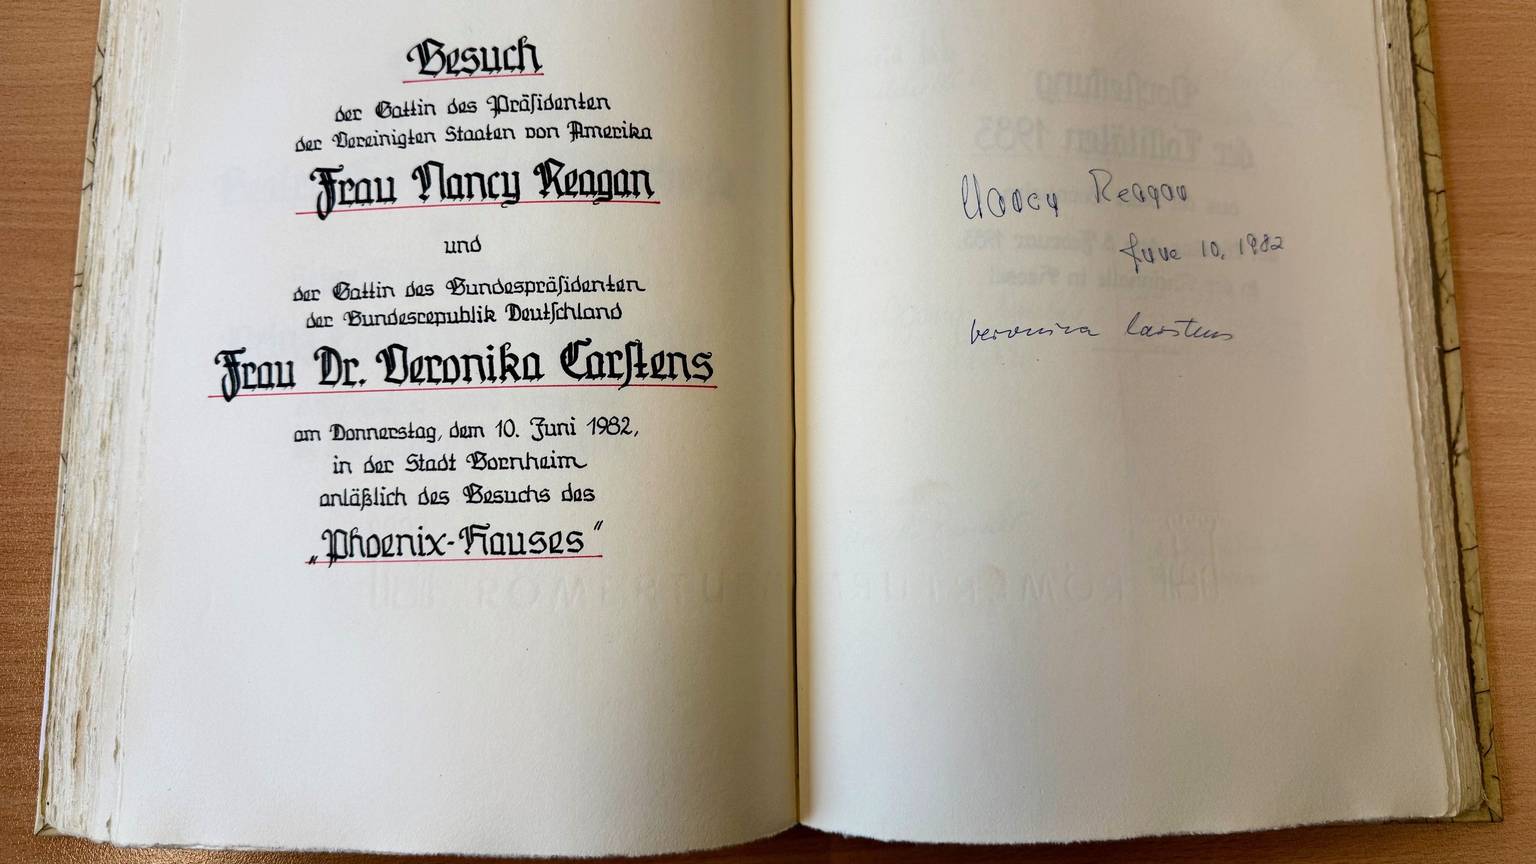 Besuch
der Gattin des Präsidenten
der Vereinigten Staaten von Amerika
Frau Nancy Reagan
und
der Gattin des Bundespräsidenten
der Bundesrepublik Deutschland
Frau Dr. Veronika Carstens
am Donnerstag, dem 10. Juni 1982,
in der Stadt Bornheim
anläßlich des Besuchs des
„Phoenix-Hauses"
Nancy Reagan
June 10, 1982
Veronica Carstens